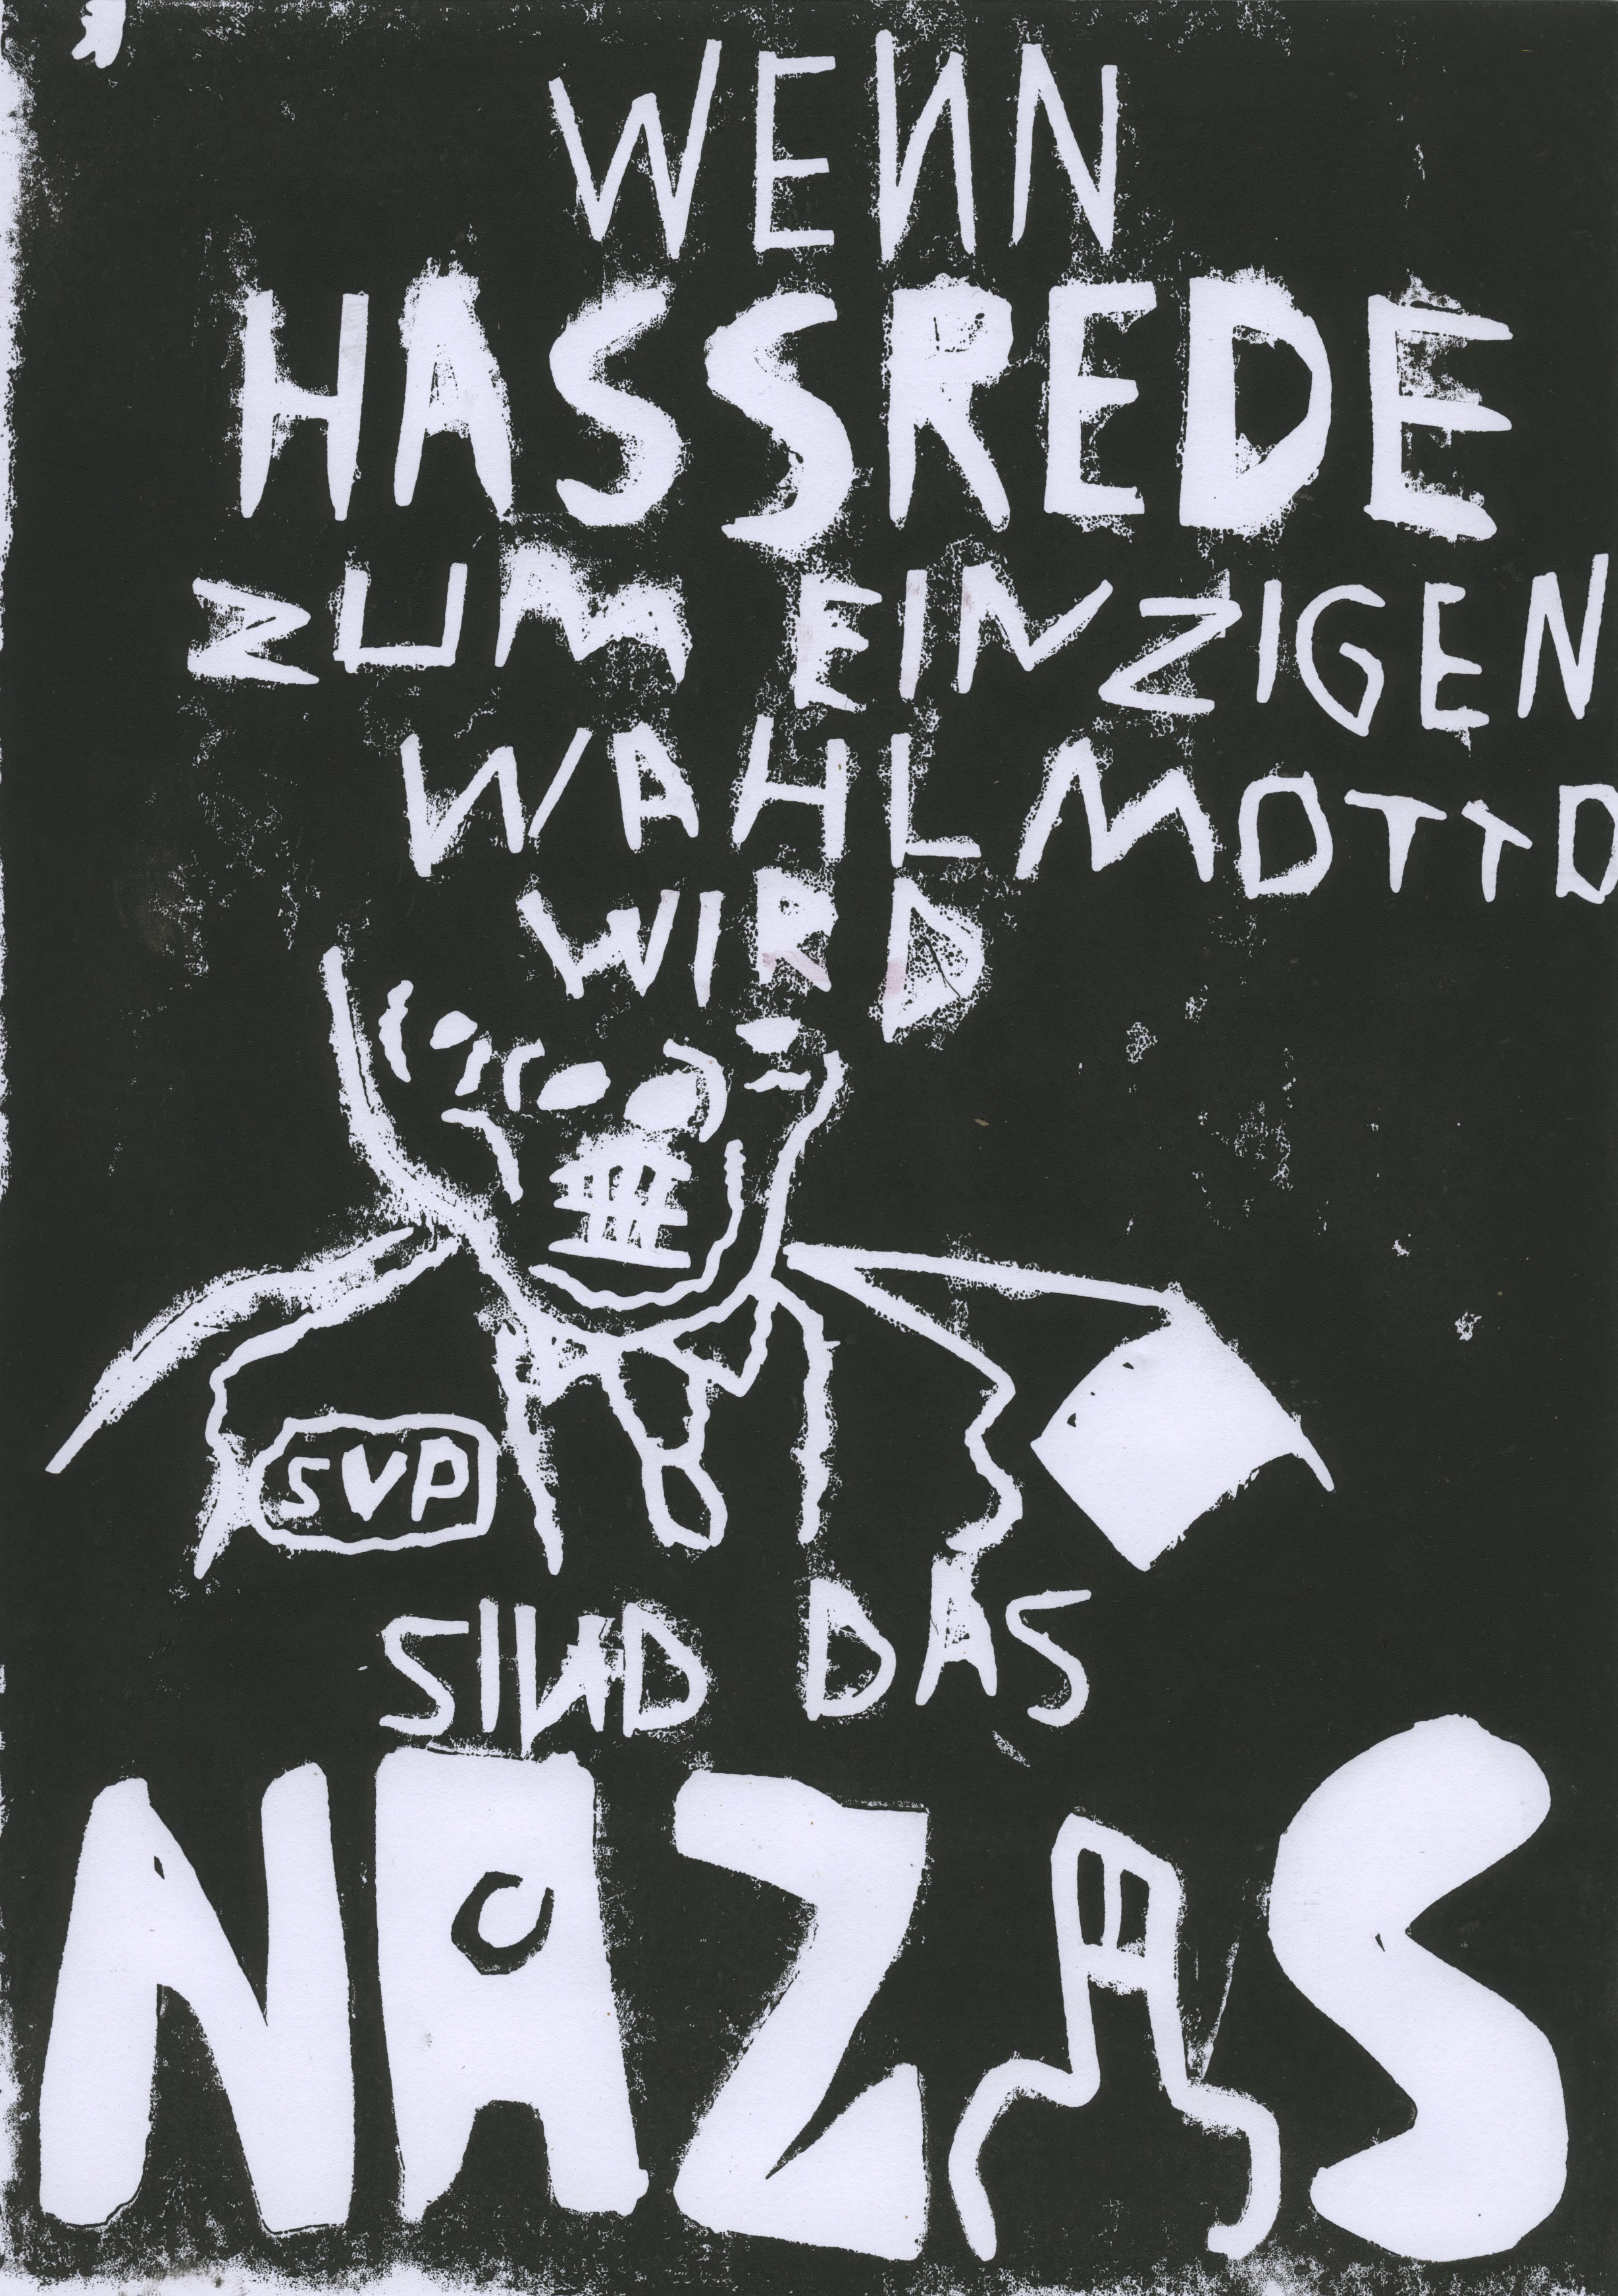 WENN
HASSREDE
ZUM EINZIGEN
WAHLMOTTO
WIRD
SVP
SIND DAS
NAZAS